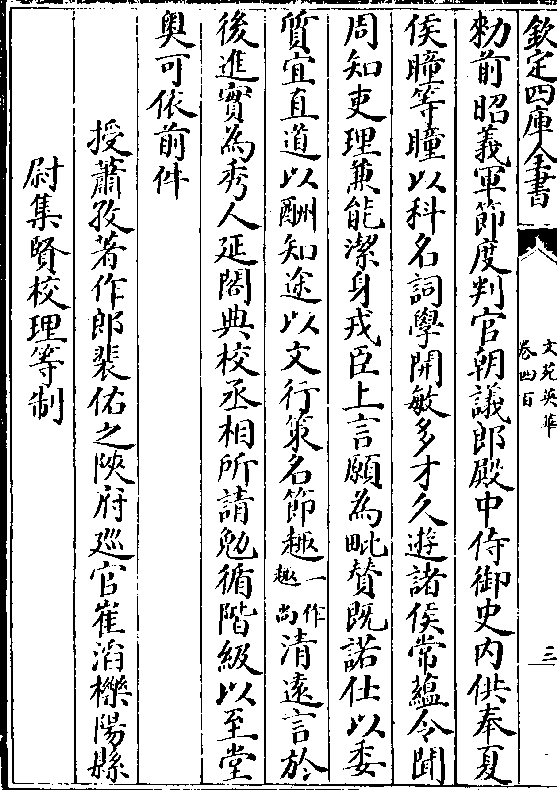 欽定四庫全書
文苑英華
卷四百
三
勑前昭義軍節度判官朝議郎殿中侍御史内供奉夏
侯瞳等瞳以科名詞學開敏多才久遊諸侯常藴令聞
周知吏理兼能潔身戎臣上言願為毗賛既諾仕以委
質宜直道以酬知途以文行策名節趣一作趣尚清遠言於
後進實為秀人延閣典校丞相所請勉循階級以至堂
奥可依前件
授蕭孜著作郎裴佑之陝府廵官崔滔櫟陽縣
尉集賢校理等制